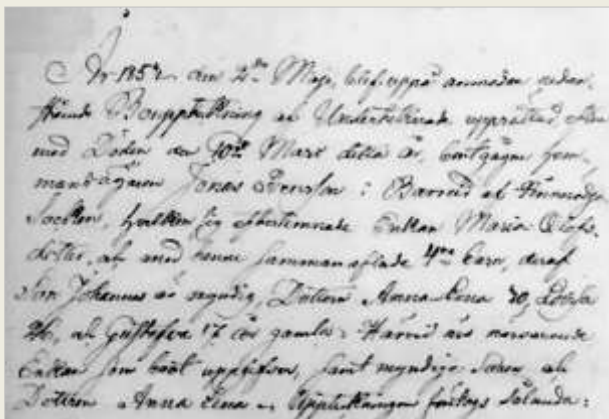 År 185 den 2dra Maji, blef uppå anmodan nedan
stående Bouppteckning af Undertecknade upprättad efter
med Döden den 10de Mars detta år, bortgågne hem-
mans ägaren Jonas i
Socken, hvilken sig efterlemnade Enkan Maria Olofs
dotter, af med henne samman aflade 4ra barn, deraf
Son Johannes är myndig, Dottern Anna Lena 30, Lovisa
26, och Gustafva 17 år gamla. Härvid var närvarande
Enkan som boet uppgifver, samt myndige Sonen och
Dottern Anna Lena. Uppteckningen förtogs sålunda: